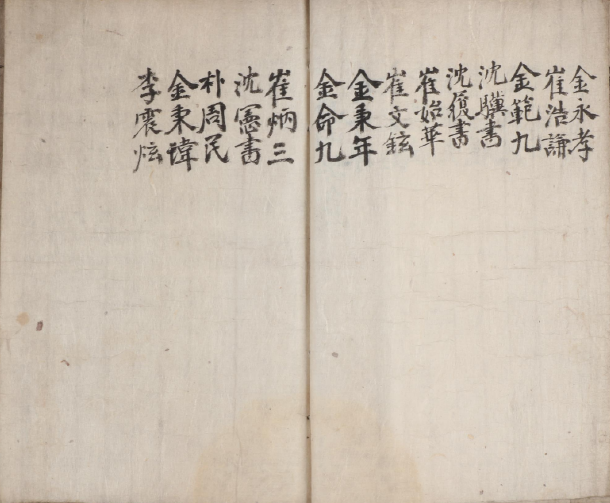 金永孝
崔浩謙
金範九
沈驥書
沈復書
崔始華
崔文鉉
金秉年
金命九
崔炳三
沈憲書
朴周民
金秉瑋
李震炫